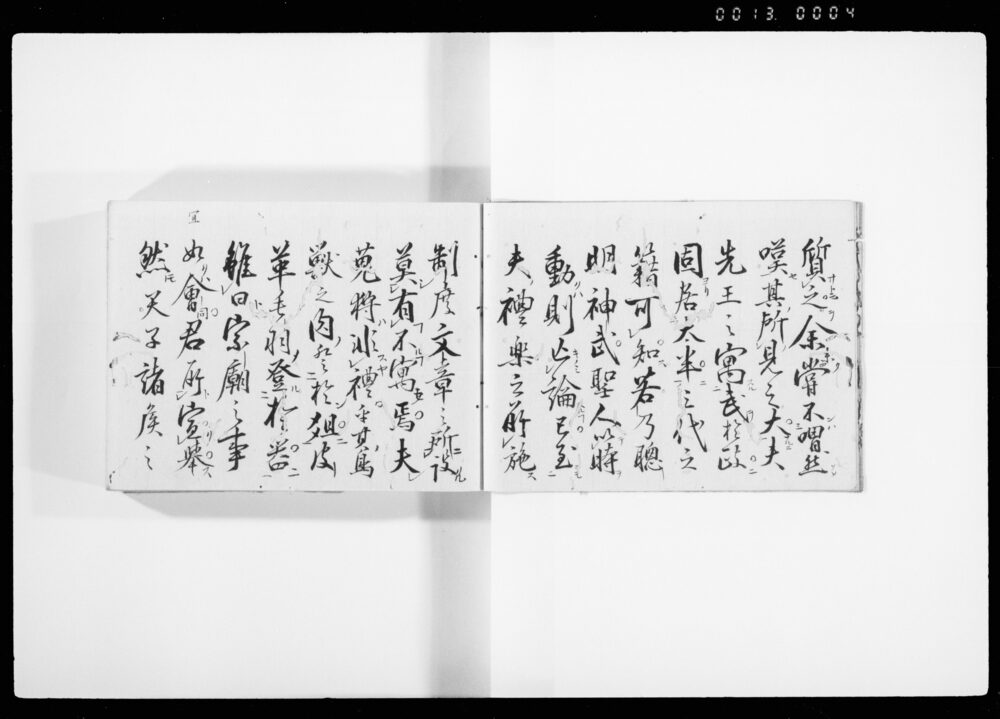 0013 0004
質之余嘗不喟然
嘆其所見之大夫
先王之寓武於政
固居太半三代之
籍可知若乃聰
明神武聖人以時
動則亡論已至
夫禮樂之所施
制度文章之所設
莫有不寓焉夫
蒐狩非禮乎其爲
獸之肉不之於俎皮
革毛羽登於器
雖曰宗廟之事
如會君所宜舉
然天子諸侯之